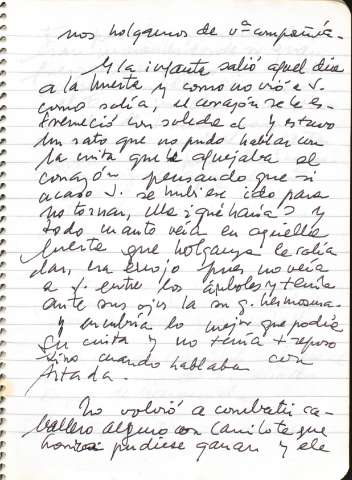 nos holgamos de vª compañía.
Y la infanta salió aquel dia
a la huerta y como no vió a J.
como solía, el corazón se le es-
tremeció con soledad y estuvo
un rato que no pudo hablar con
la cuita que le aquejaba el
corazón pensando que si
acaso J. se hubiese ido para
no tornar, ella ¿qué haría? y
todo cuanto veía en aquella
huerta que holganza le solía
dar, era enojo pues no veía
a J. entre los árboles y tenía
ante sus ojos la su g. hermosura.
y encubría lo mejor que podía
su cuita y no tenía + reposo
sino cuando hablaba con
Artada.
No volvió a combatir ca-
ballero alguno con Camilote que
honra pudiese ganar y ele